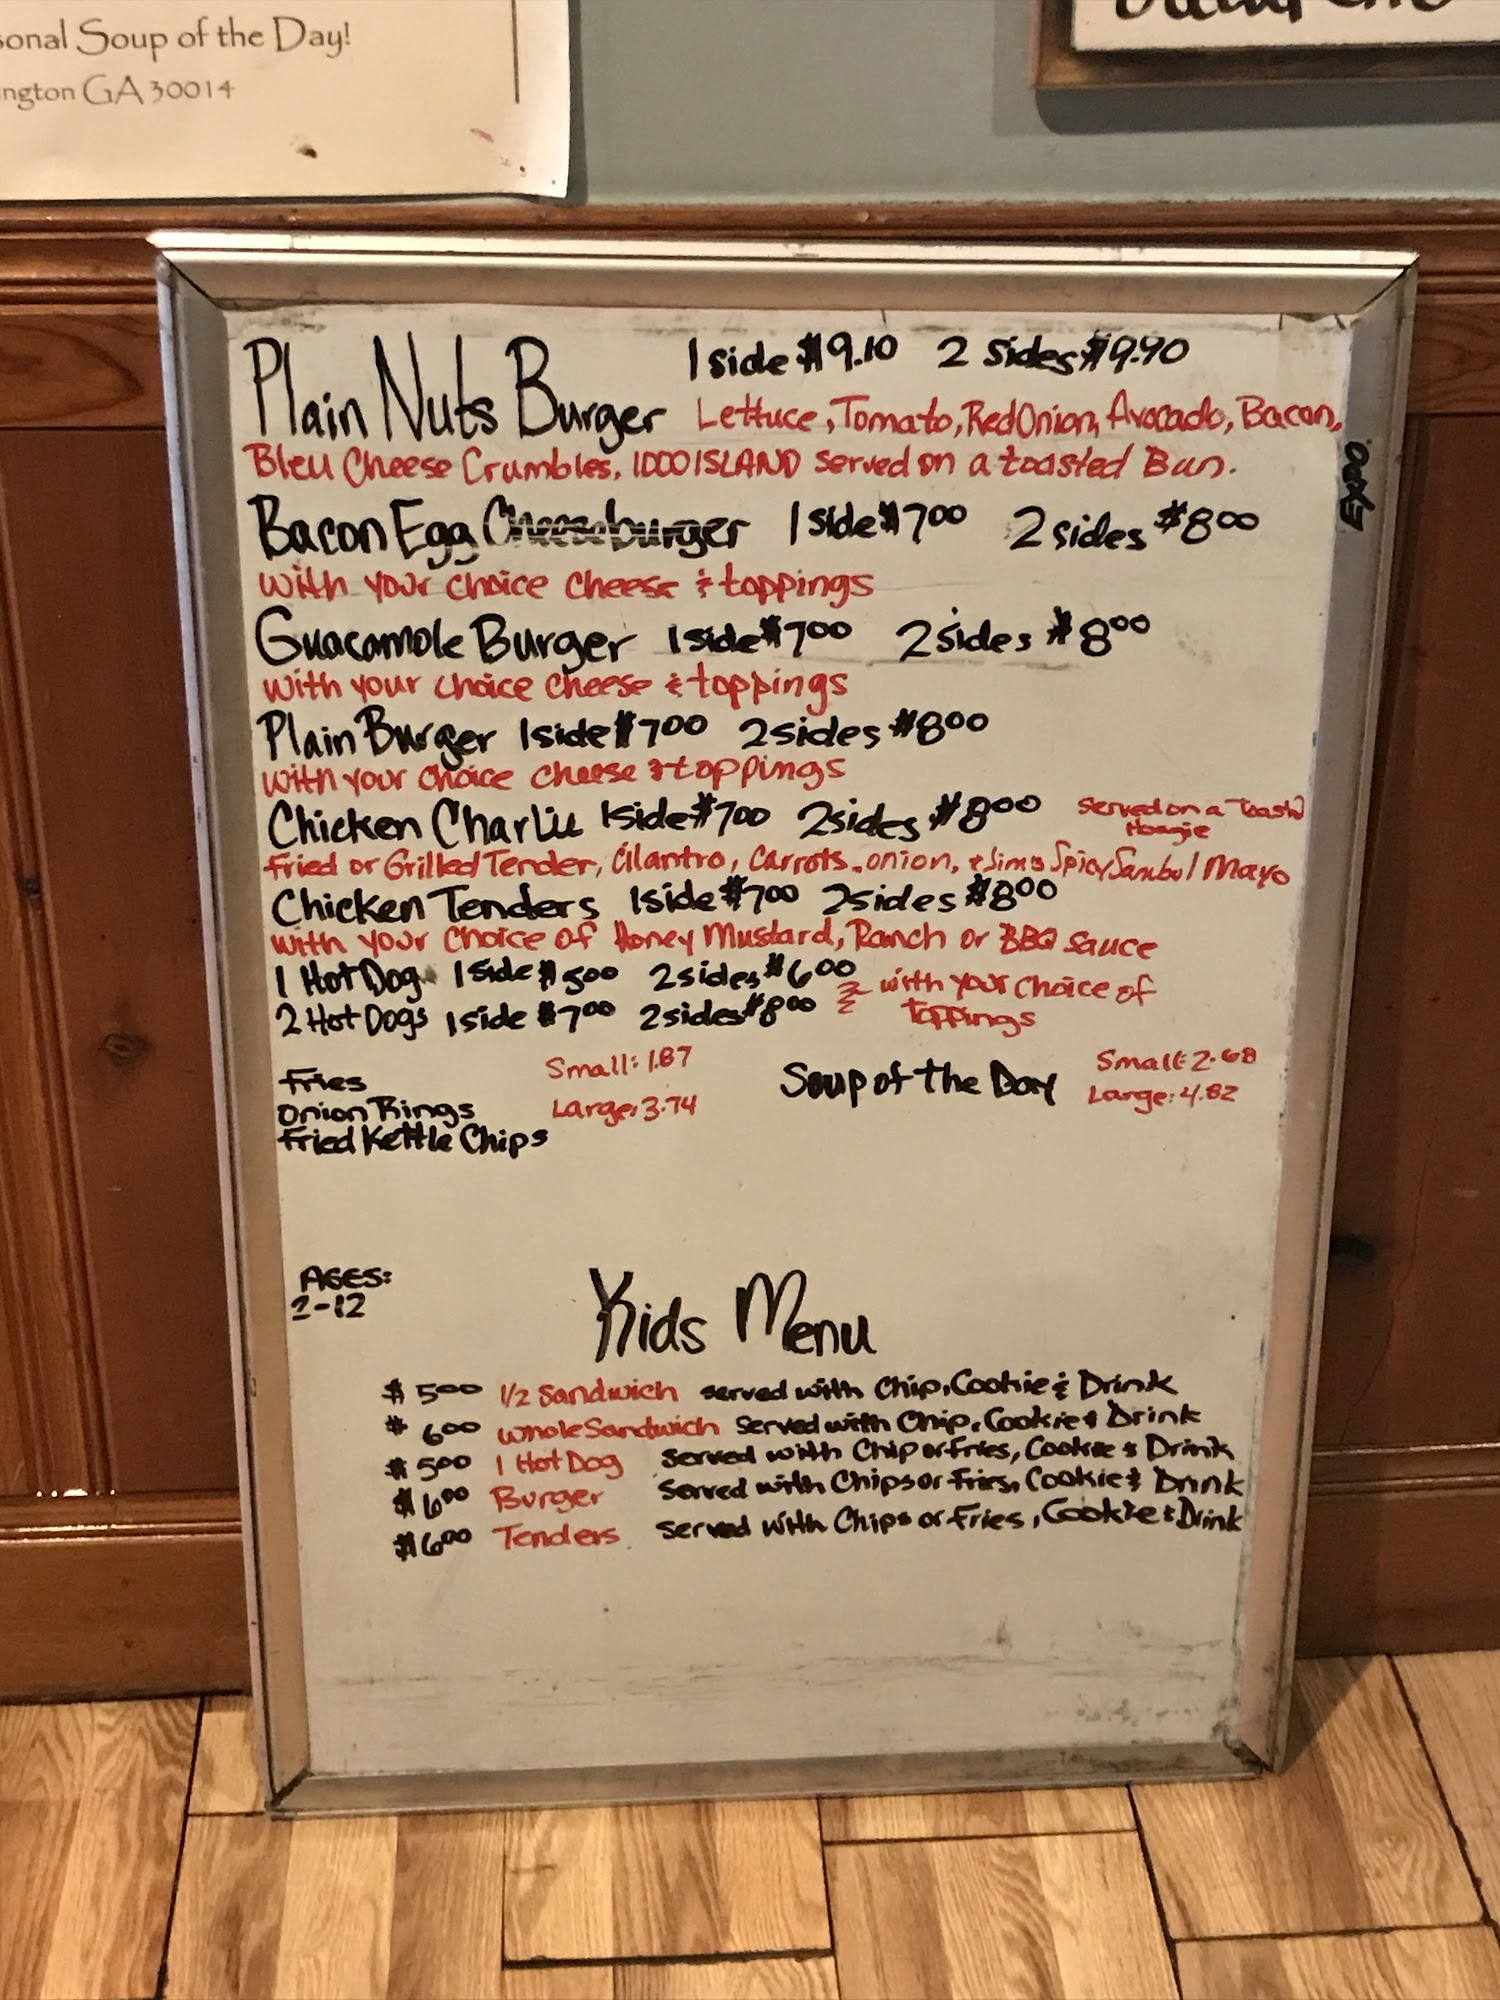 sonal Soup of the Day!
ngton GA 30014
Plain Nuts Burger 1 side $9.10 2 sides $9.90
Lettuce, Tomato, Red Onion, Avocado, Bacon,
Bleu Cheese Crumbles, 1000 ISLAND served on a toasted Bun.
EXPO
Bacon Egg Cheeseburger 1 side $7.00 2 sides $8.00
with your choice cheese & toppings
Guacamole Burger 1 side $7.00 2 sides $8.00
with your choice cheese & toppings
Plain Burger 1 side $7.00 2 sides $8.00
with your choice cheese & toppings
Chicken Charlie 1 side $7.00 2 sides $8.00 Served on a Toastd
Hoagie
Fried or Grilled Tender, Cilantro, Carrots, onion, & Jim's Spicy Sambol Mayo
Chicken Tenders 1 side $7.00 2 sides $8.00
with your choice of Honey Mustard, Ranch or BBQ sauce
1 Hot Dog 1 side $5.00 2 sides $6.00 with your choice of
2 Hot Dogs 1 side $7.00 2 sides $8.00 Toppings
Fries Small: 1.87
Onion Rings Large: 3.74
Fried Kettle Chips
Soup of the Day Small: 2.68
Large: 4.82
AGES:
2-12
Kids Menu
$5.00 1/2 Sandwich served with Chip, Cookie & Drink
$6.00 whole Sandwich Served with Chip, Cookie & Drink
$5.00 1 Hot Dog Served with Chip or Fries, Cookie & Drink
$6.00 Burger Served with Chips or Fries, Cookie & Drink
$6.00 Tenders served with Chips or Fries, Cookie & Drink